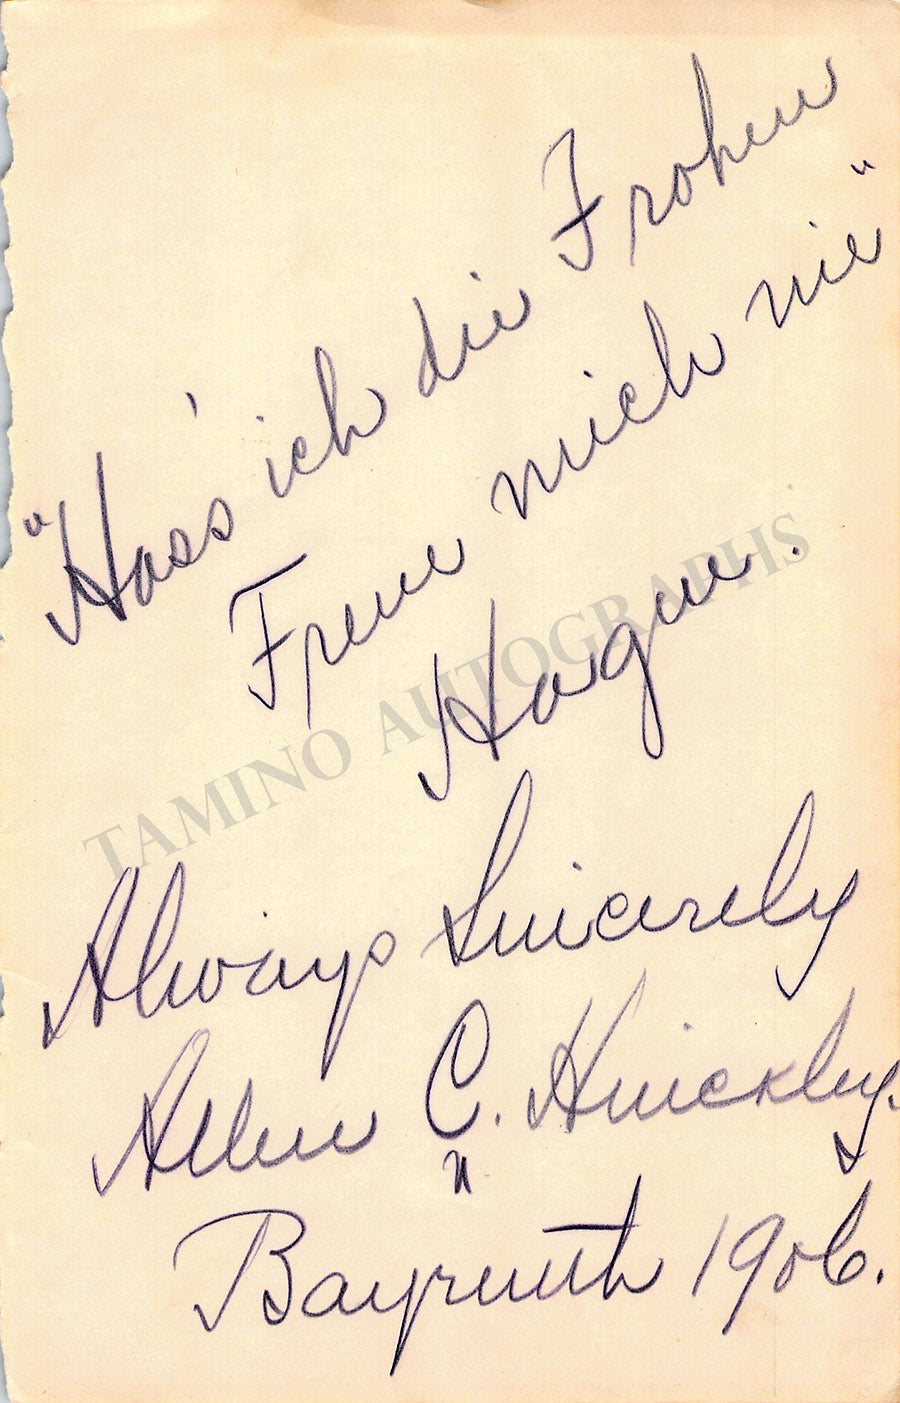 "Hass' ich die Frohen
Freue mich nie"
Hagen.
TAMINO AUTOGRAPHS
Always Sincerely
Allen C. Hinckley.
Bayreuth 1906.